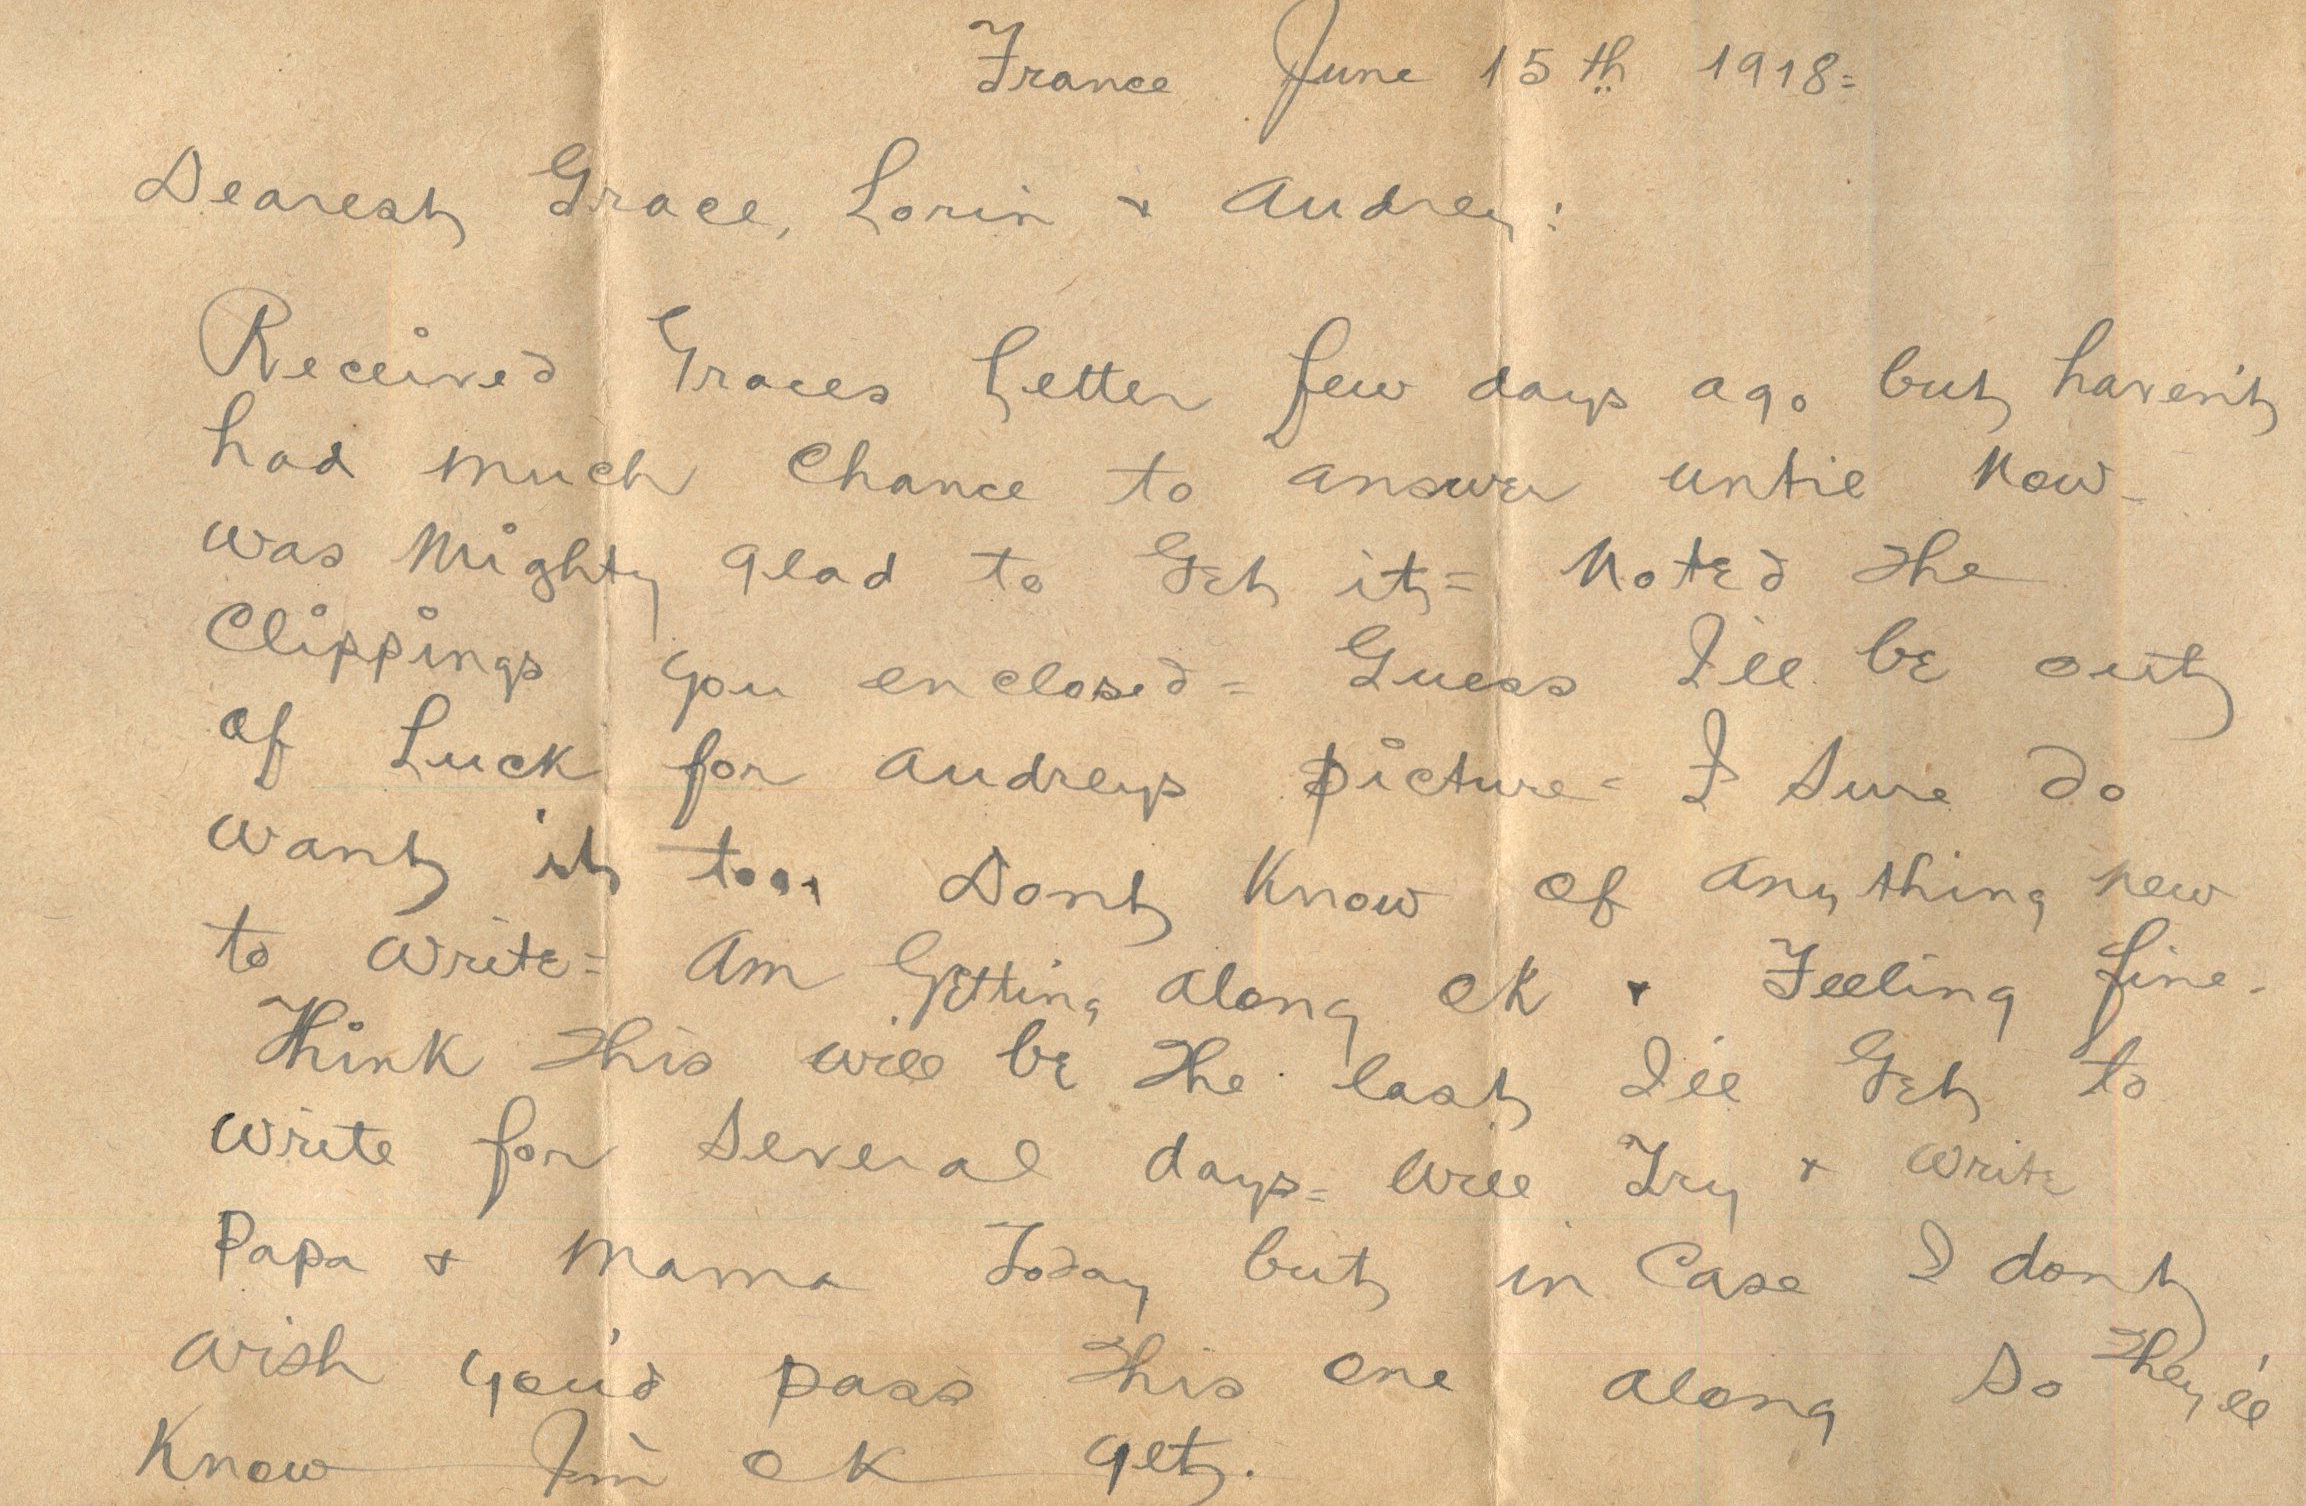 France June 15th 1918=
Dearest Grace, Lorin + Audrey:
Received Graces Letter few days ago but haven't
had much Chance to answer until Now-
was Mighty glad to Get it= Noted the
Clippings you enclosed= Guess I'll be out
of Luck for Audreys picture= I Sure do
want it too. Dont Know of anything new
to write= Am Getting along OK + Feeling fine-
Think this will be the last I'll Get to
write for Several days= Will Try + write
Papa + Mama Today but in Case I dont
wish you'd pass this one along so they'll
Know I'm OK yet.